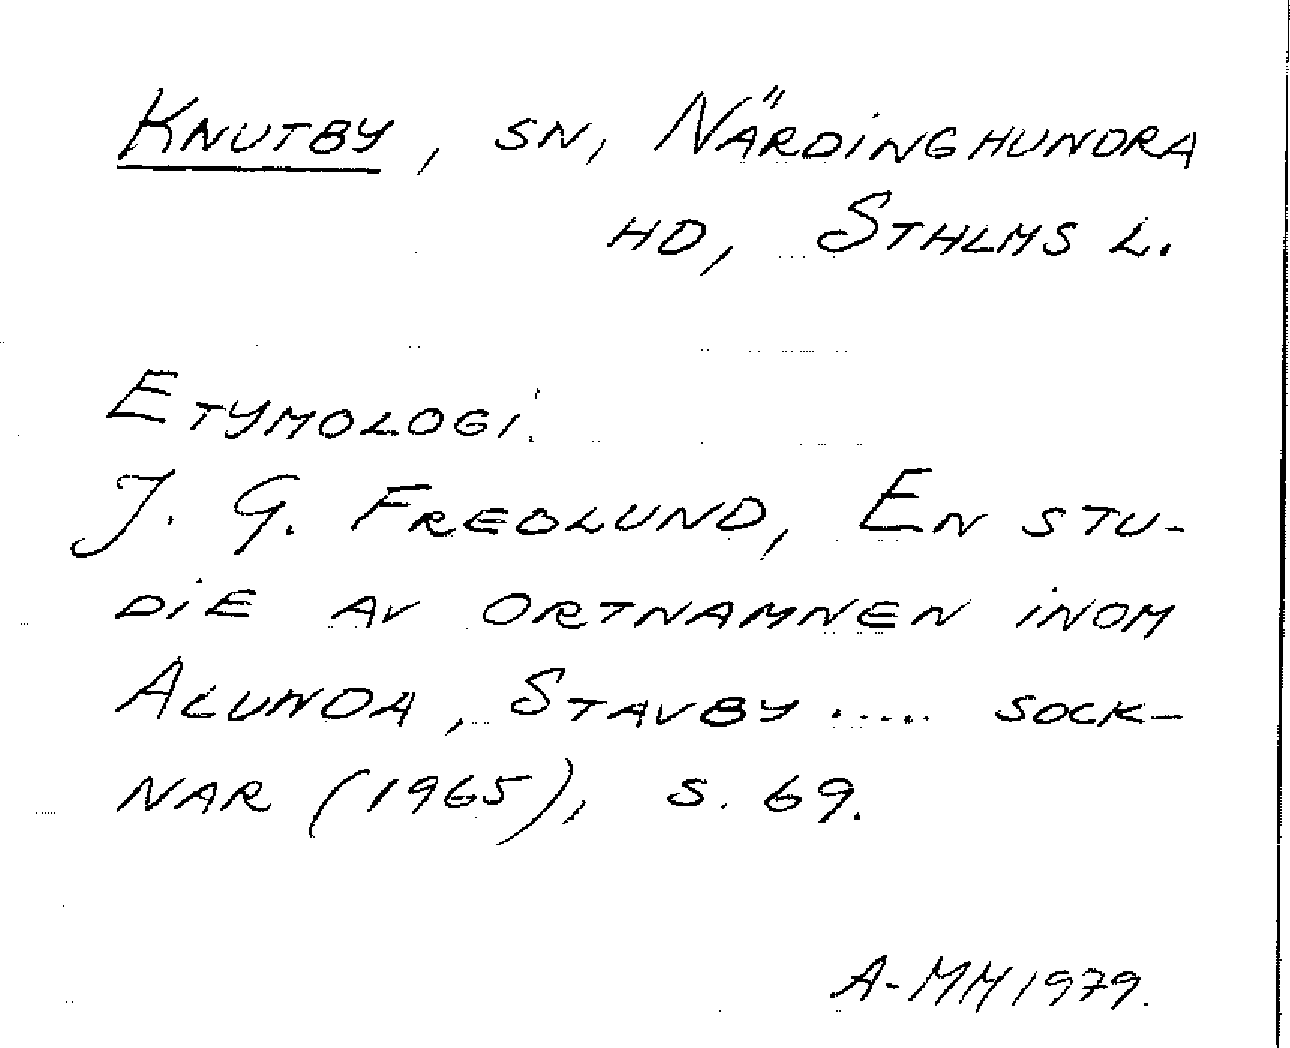 Knutby, sn, Närdinghundra
hd, Sthlms l.
Etymologi:
J. G. Fredlund, En stu-
die av ortnamnen inom
Alunda, Stavby ..... sock-
nar (1965), s. 69.
A-MM 1979.